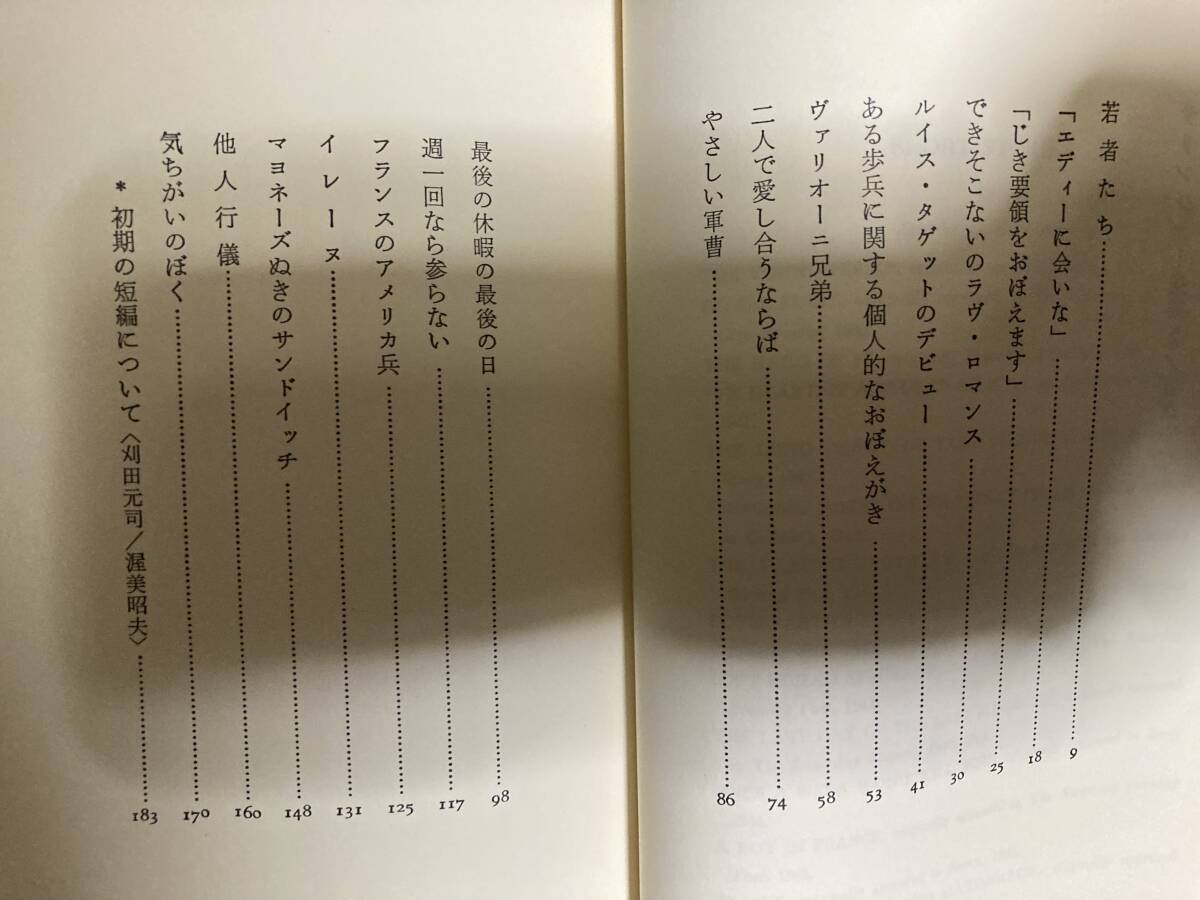 若者たち……9
「エディーに会いな」……18
「じき要領をおぼえます」……25
できそこないのラヴ・ロマンス……30
ルイス・タゲットのデビュー……41
ある歩兵に関する個人的なおぼえがき……53
ヴァリオーニ兄弟……58
二人で愛し合うならば……74
やさしい軍曹……86
最後の休暇の最後の日……98
週一回なら参らない……117
フランスのアメリカ兵……125
イレーヌ……131
マヨネーズぬきのサンドイッチ……148
他人行儀……160
気ちがいのぼく……170
*初期の短編について〈刈田元司/渥美昭夫〉……183